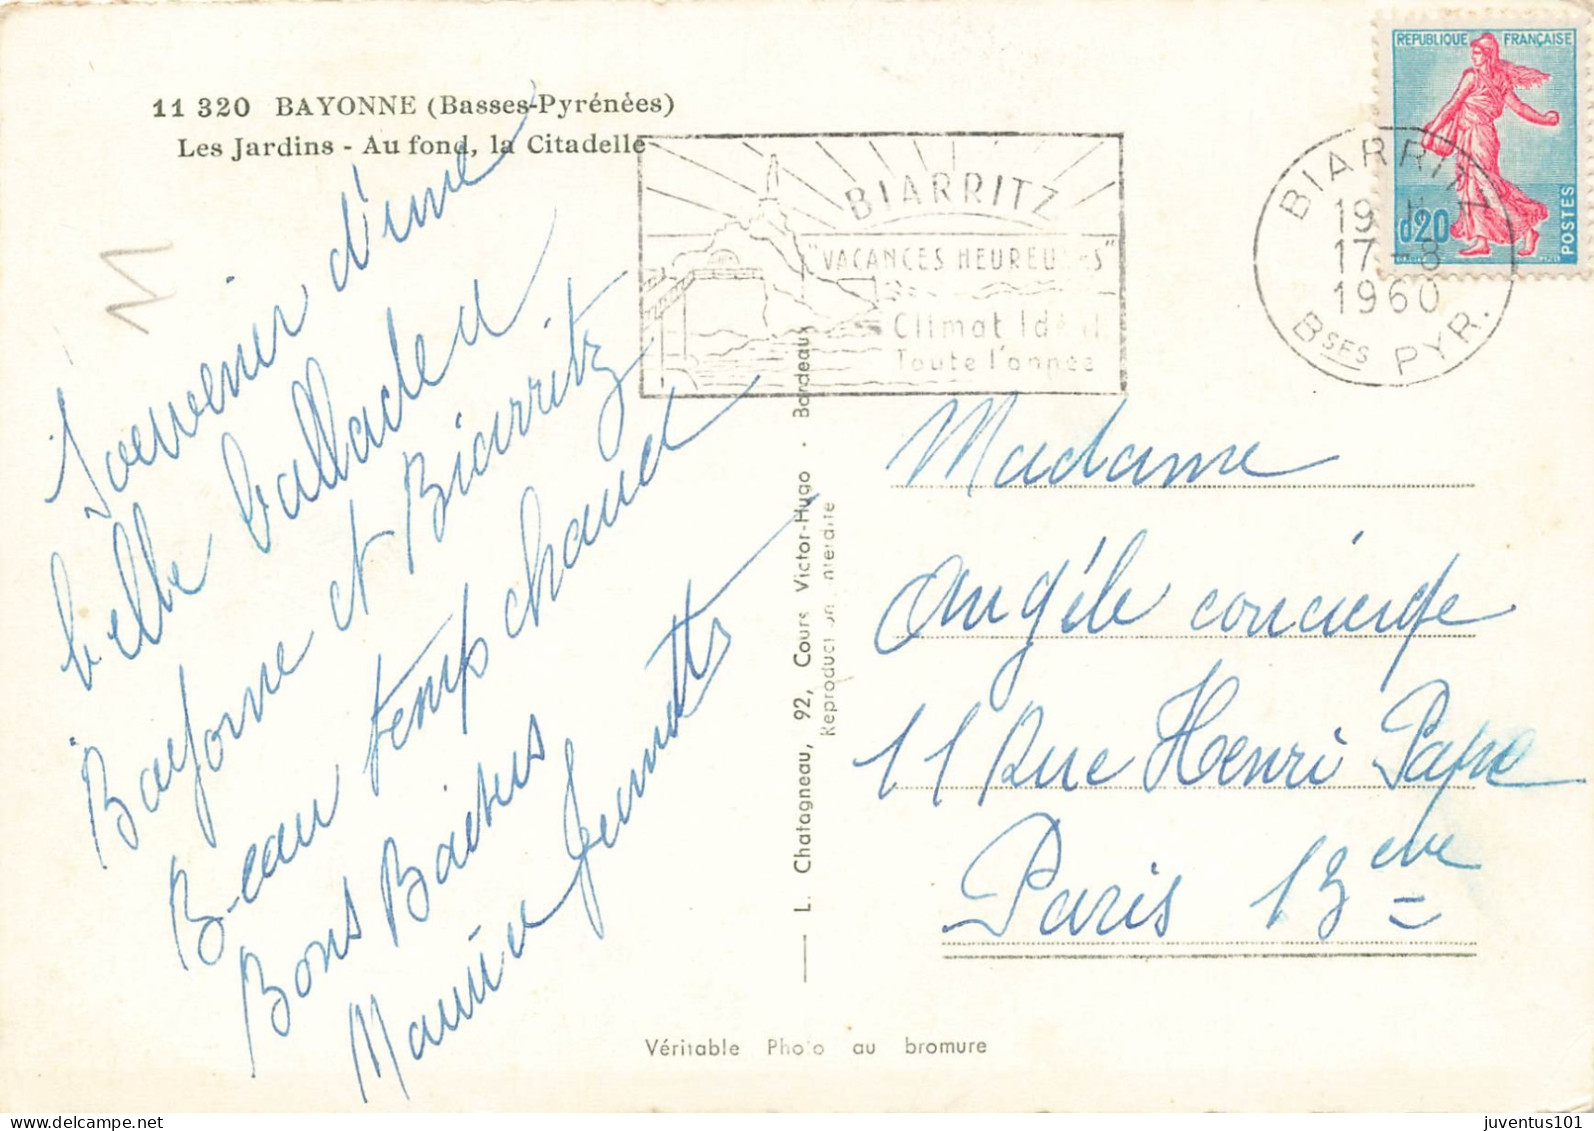 11 320 BAYONNE (Basses-Pyrénées)
Les Jardins - Au fond, la Citadelle
Souvenir d'une
belle ballade a
Bayonne et Biarritz
Beau temp chaud
Bons Baisers
Jeannette
BIARRITZ
"VACANCES HEUREUSES"
Climat Idéal
Toute l'année
REPUBLIQUE FRANÇAISE
0,20
POSTES
BIARRITZ
19 H
17 - 8
1960
BSES PYR.
Madame
Angéle concierge
11 Rue Henri Pape
Paris 13eme
L. Chatagneau, 92, Cours Victor-Hugo - Bordeaux
Reproduction interdite
Véritable Photo au bromure
juventus101